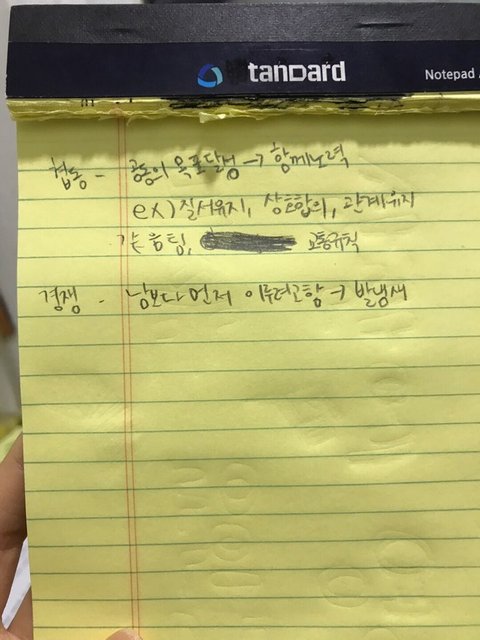 tanDard
Notepad
협동 - 공동의 목표달성 → 함께노력
ex) 질서유지, 상호합의, 관계유지
같은팀, 교통규칙
경쟁 - 남보다 먼저 이루려고함 → 발냄새